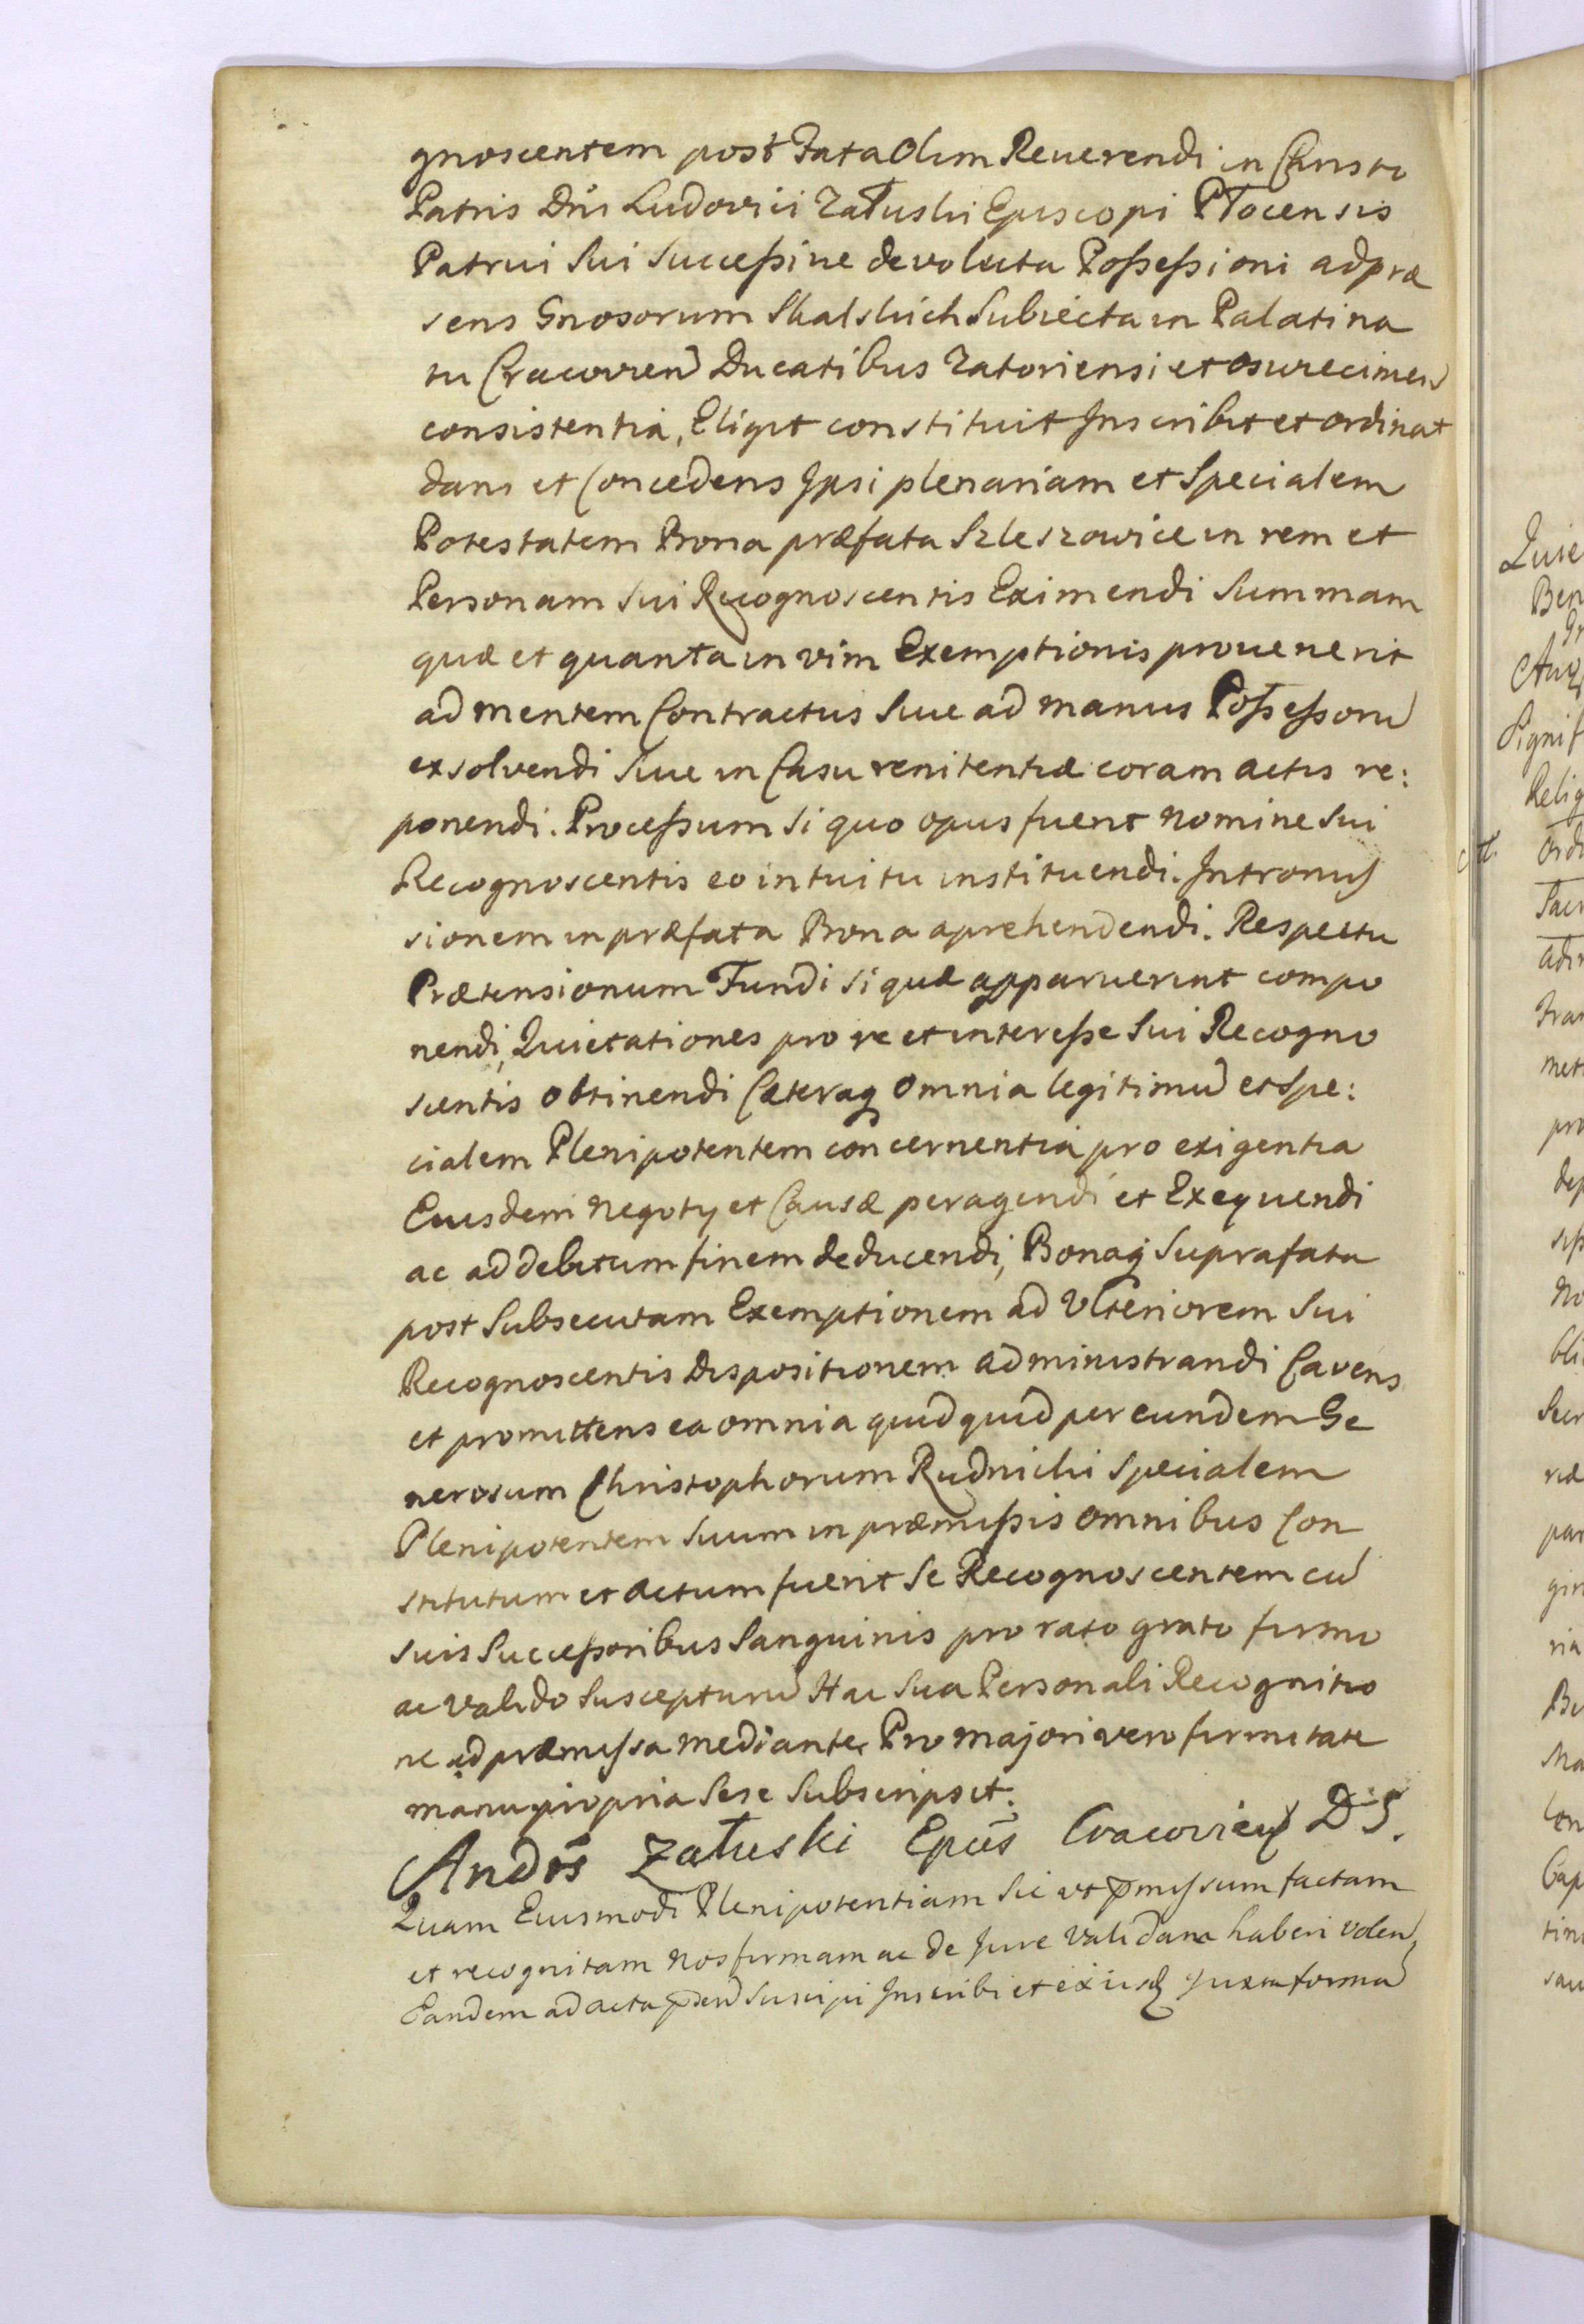 gnoscentem post Fata Olim Reuerendi in Christo
Patris Dni Ludovici Załuski Episcopi Płocensis
Patrui Sui Successive devoluta Possessioni ad præ
sens Gnosorum Skalskich Subiecta in Palatina
tu Cracovien Ducatibus Zatoriensi et Osviecimen
consistentia, Eligit constituit Inscribit et ordinat
dans et Concedens Ipsi plenariam et Specialem
Potestatem Bona præfata Szleszowice in rem et
Personam Sui Recognoscentis Eximendi Summam
quæ et quanta in vim Exemptionis prouenerit
ad mentem Contractus Siue ad manus Possessoru
exsolvendi Siue in Casu renitentiæ coram actis re:
ponendi. Processum Si quo opus fuerit Nomine Sui
Recognoscentis eo intuitu instituendi. Intromis
sionem in præfata Bona aprehendendi. Respectu
Prætensionum Fundi si quæ apparuerint compo
nendi, Quietationes pro re et interesse Sui Recogno
scentis obtinendi Cæteraq omnia legitimu et Spe:
cialem Plenipotentem concernentia pro exigentia
Eiusdem Negotij et Causæ peragendi et Exequendi
ac ad debitum finem deducendi, Bonaq Suprafata
post Subsecutam Exemptionem ad Ulteriorem Sui
Recognoscentis Dispositionem administrandi Cavens
et promittens ea omnia quidquid per eundem Ge
nerosum Christophorum Rudnicki Specialem
Plenipotentem Suum in præmissis omnibus Con
stitutum et actum fuerit Se Recognoscentem cu
suis Successoribus Sanguinis pro rato grato firmo
ac valido Suscepturu Hac Sua Personali Recognitio
ne ad præmissa mediante. Pro majori vero firmitate
manu propria Sese Subscripsit.
Andrs Załuski Epūs Cracovien D S.
Quam Eiusmodi Plenipotentiam Sic ut pmissum factam
et recognitam Nos firmam ac de Jure Validam haberi volen,
Eandem ad acta pden Suscipi Inscribi et ex iisd Juxta forma